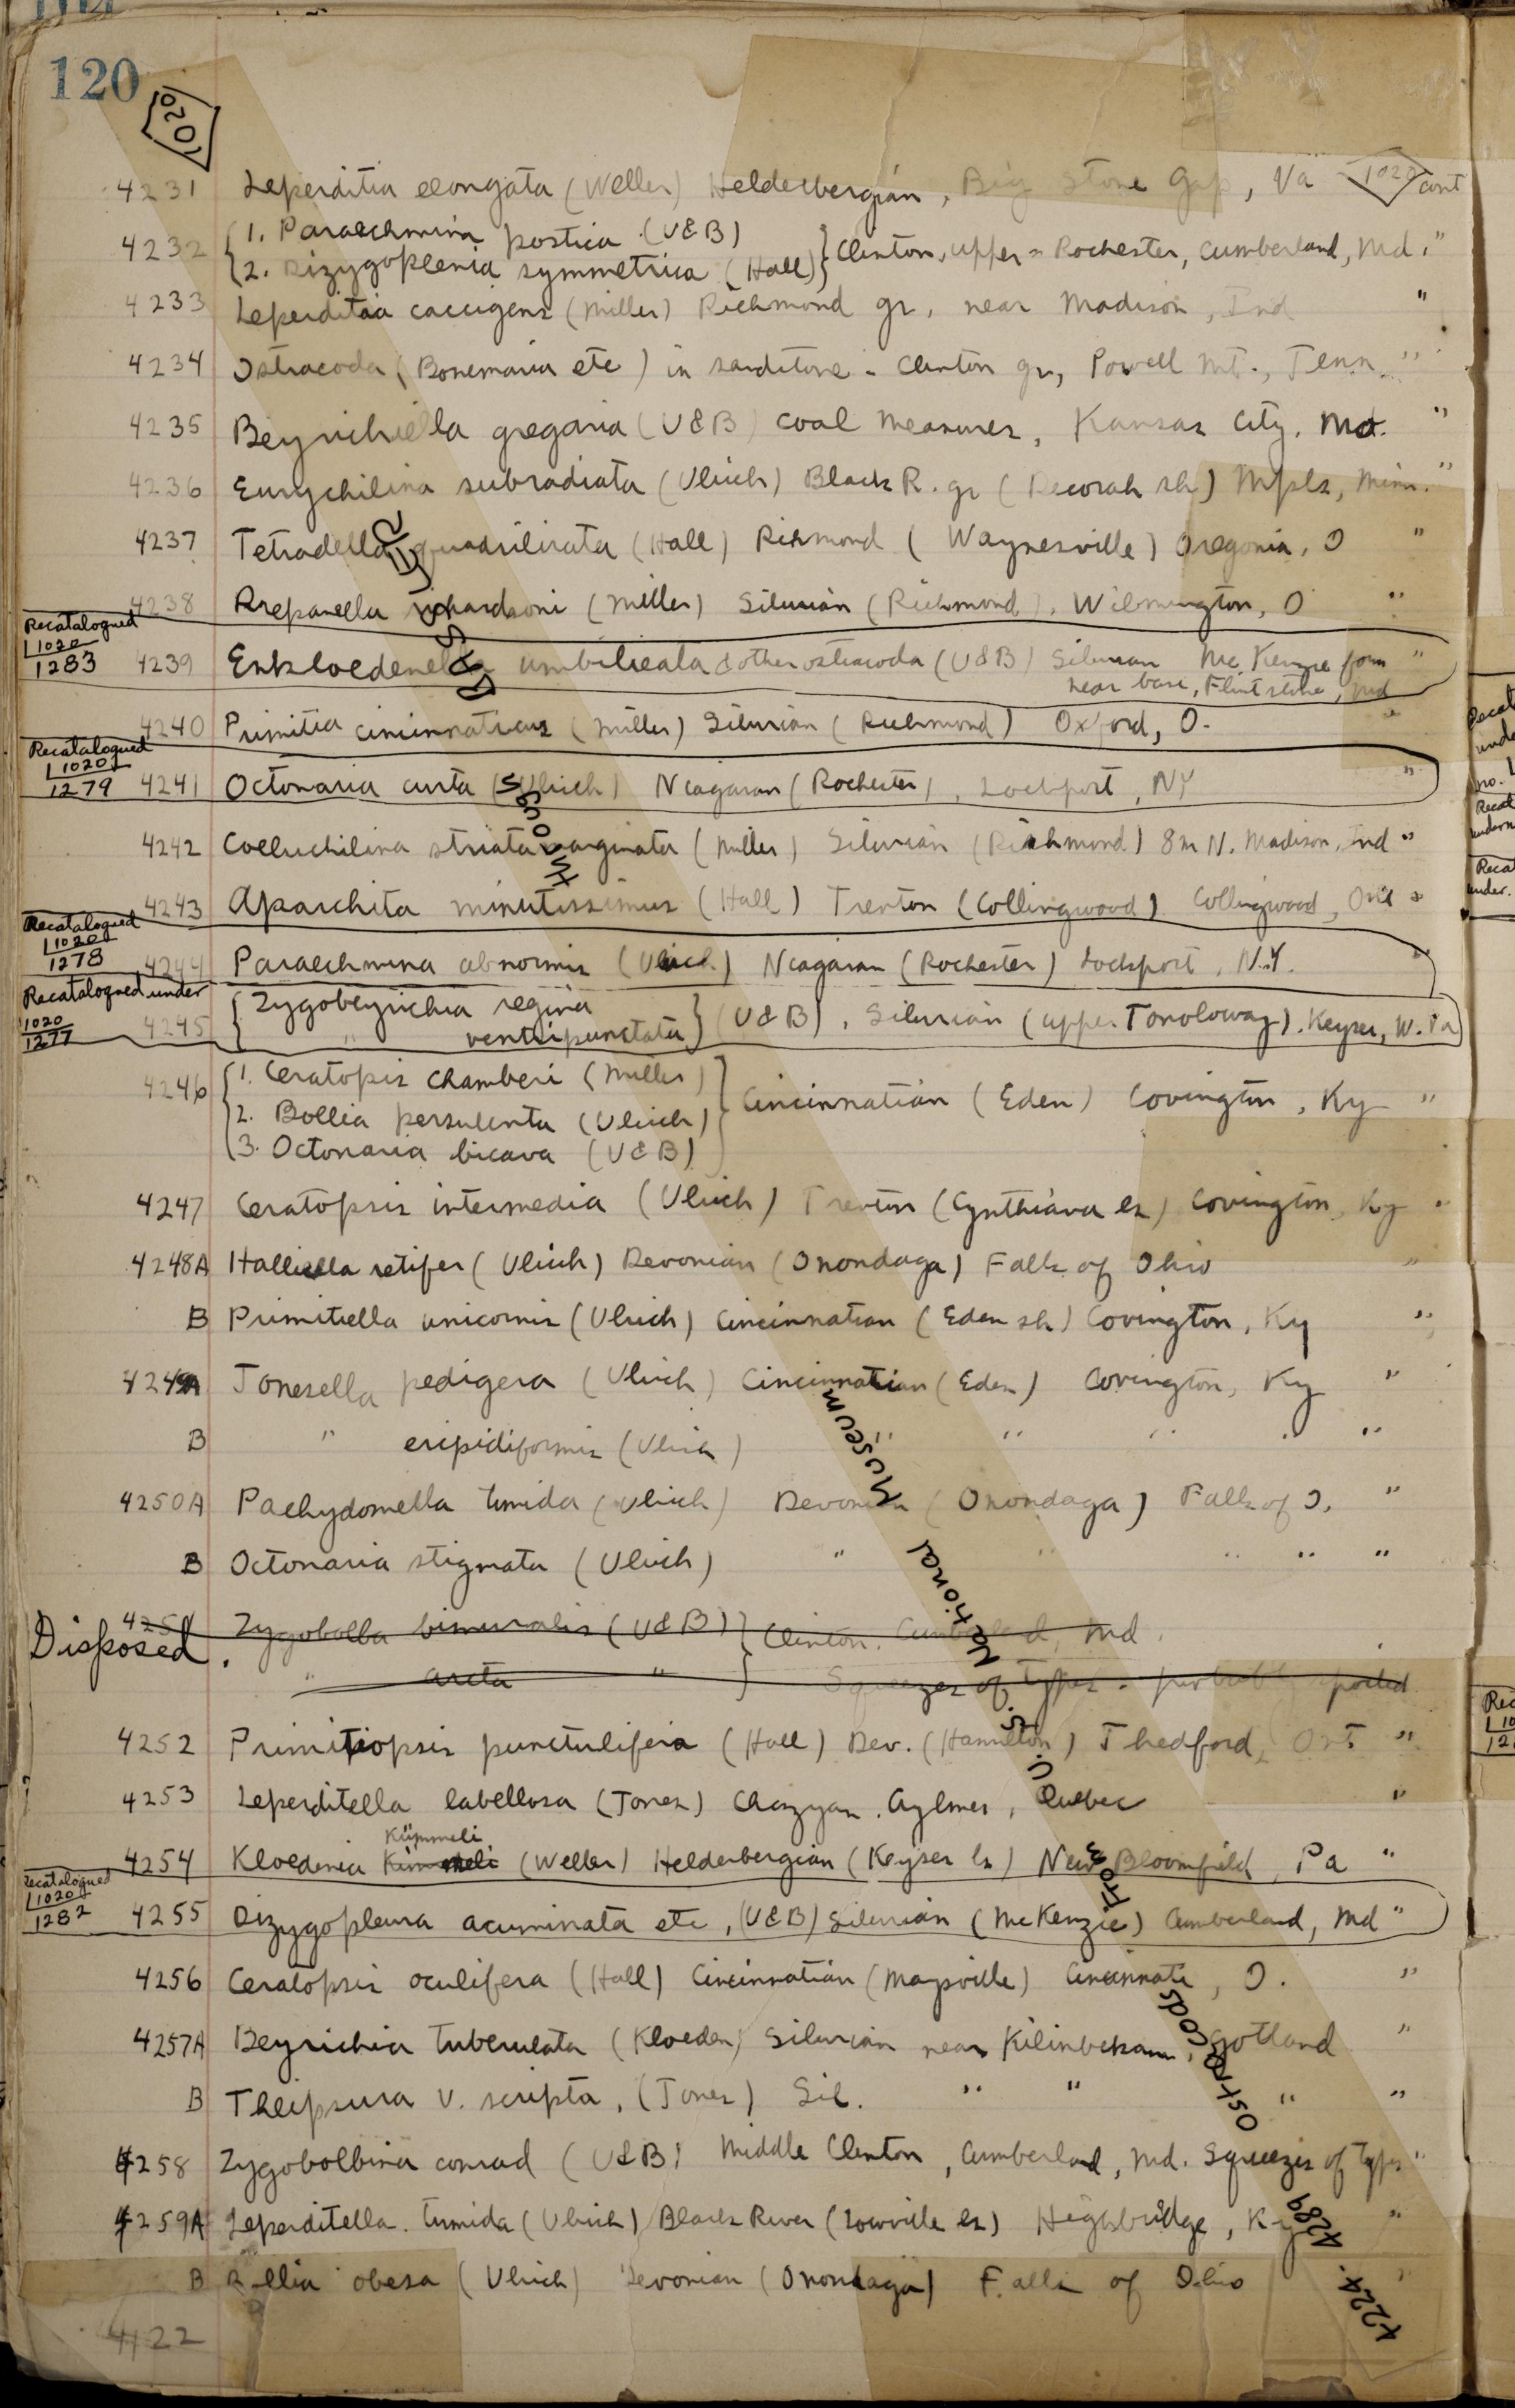 120
1020
4231 Leperditia elongata (Weller) Helderbergian, Big Stone Gap, Va 1020 cont
4232 { 1. Paraechmina postica (U&B)
2. Dizygoplenia symmetrica (Hall) } Clinton, upper = Rochester, Cumberland, Md. "
4233 Leperditia caecigena (Miller) Richmond gr, near Madison, Ind "
4234 Ostracoda (Bonemaria etc) in sandstone - Clinton gr, Powell Mt., Tenn "
4235 Beyrichiella gregaria (U&B) Coal Measures, Kansas City, Mo. "
4236 Eurychilina subradiata (Ulrich) Black R. gr (Decorah sh) Mpls, Minn. "
4237 Tetradella quadrilirata (Hall) Richmond (Waynesville) Oregonia, O "
4238 Drepanella richardsoni (Miller) Silurian (Richmond), Wilmington, O "
Recatalogued
1020
1283
4239 Enkloedenella umbilicata & other ostracoda (U&B) Silurian McKenzie form "
near base, Flintstone, Md
4240 Primitia cincinnaticus (Miller) Silurian (Richmond) Oxford, O. "
Recatalogued
1020
1279
4241 Octonaria curta (Ulrich) Niagaran (Rochester), Lockport, NY "
4242 Coeluchilina striatomarginata (Miller) Silurian (Richmond) 8m N. Madison, Ind "
4243 Aparchita minutissimus (Hall) Trenton (Collingwood) Collingwood, Ont "
Recatalogued
1020
1278
4244 Paraechmina abnormis (Ulrich) Niagaran (Rochester) Lockport, N.Y. "
Recatalogued under
1020
1277
4245 { Zygobeyrichia regina
" ventripunctata } (U&B), Silurian (upper Tonoloway), Keyser, W. Va
4246 { 1. Ceratopsis chamberi (Miller)
2. Bollia persulcata (Ulrich)
3. Octonaria bicava (U&B) } Cincinnatian (Eden) Covington, Ky "
4247 Ceratopsis intermedia (Ulrich) Trenton (Cynthiana ls) Covington, Ky "
4248A Halliella retifer (Ulrich) Devonian (Onondaga) Falls of Ohio "
B Primitiella unicornis (Ulrich) Cincinnatian (Eden sh) Covington, Ky "
4249A Jonesella pedigera (Ulrich) Cincinnatian (Eden) Covington, Ky "
B " crepidiformis (Ulrich) " " " " "
4250A Pachydomella tumida (Ulrich) Devonian (Onondaga) Falls of O. "
B Octonaria stigmata (Ulrich) " " " " "
Disposed
4251 Zygobolba bimuralis (U&B) } Clinton, Cumberland, Md.
" arcta " } Squeezes of types - probably spoiled
4252 Primitiopsis punctulifera (Hall) Dev. (Hamilton) Thedford, Ont. "
4253 Leperditella labellosa (Jones) Chazyan, Aylmer, Quebec "
Kümmeli
4254 Kloedenia (Weller) Helderbergian (Keyser ls) New Bloomfield, Pa "
Recatalogued
1020
1282
4255 Dizygopleura acuminata etc, (U&B) Silurian (McKenzie) Cumberland, Md "
4256 Ceratopsis oculifera (Hall) Cincinnatian (Maysville) Cincinnati, O. "
4257A Beyrichia tuberculata (Kloeden) Silurian near Gotland "
B Thlipsura v. scripta, (Jones) Sil. " " " "
4258 Zygobolbina conrad (U&B) Middle Clinton, Cumberland, Md. Squeezes of types "
4259A Leperditella tumida (Ulrich) Black River (Lowville ls) Highbridge, Ky "
B Bollia obesa (Ulrich) Devonian (Onondaga) Falls of Ohio "
4122
4224-4289 Ostracods from U.S. National Museum
through